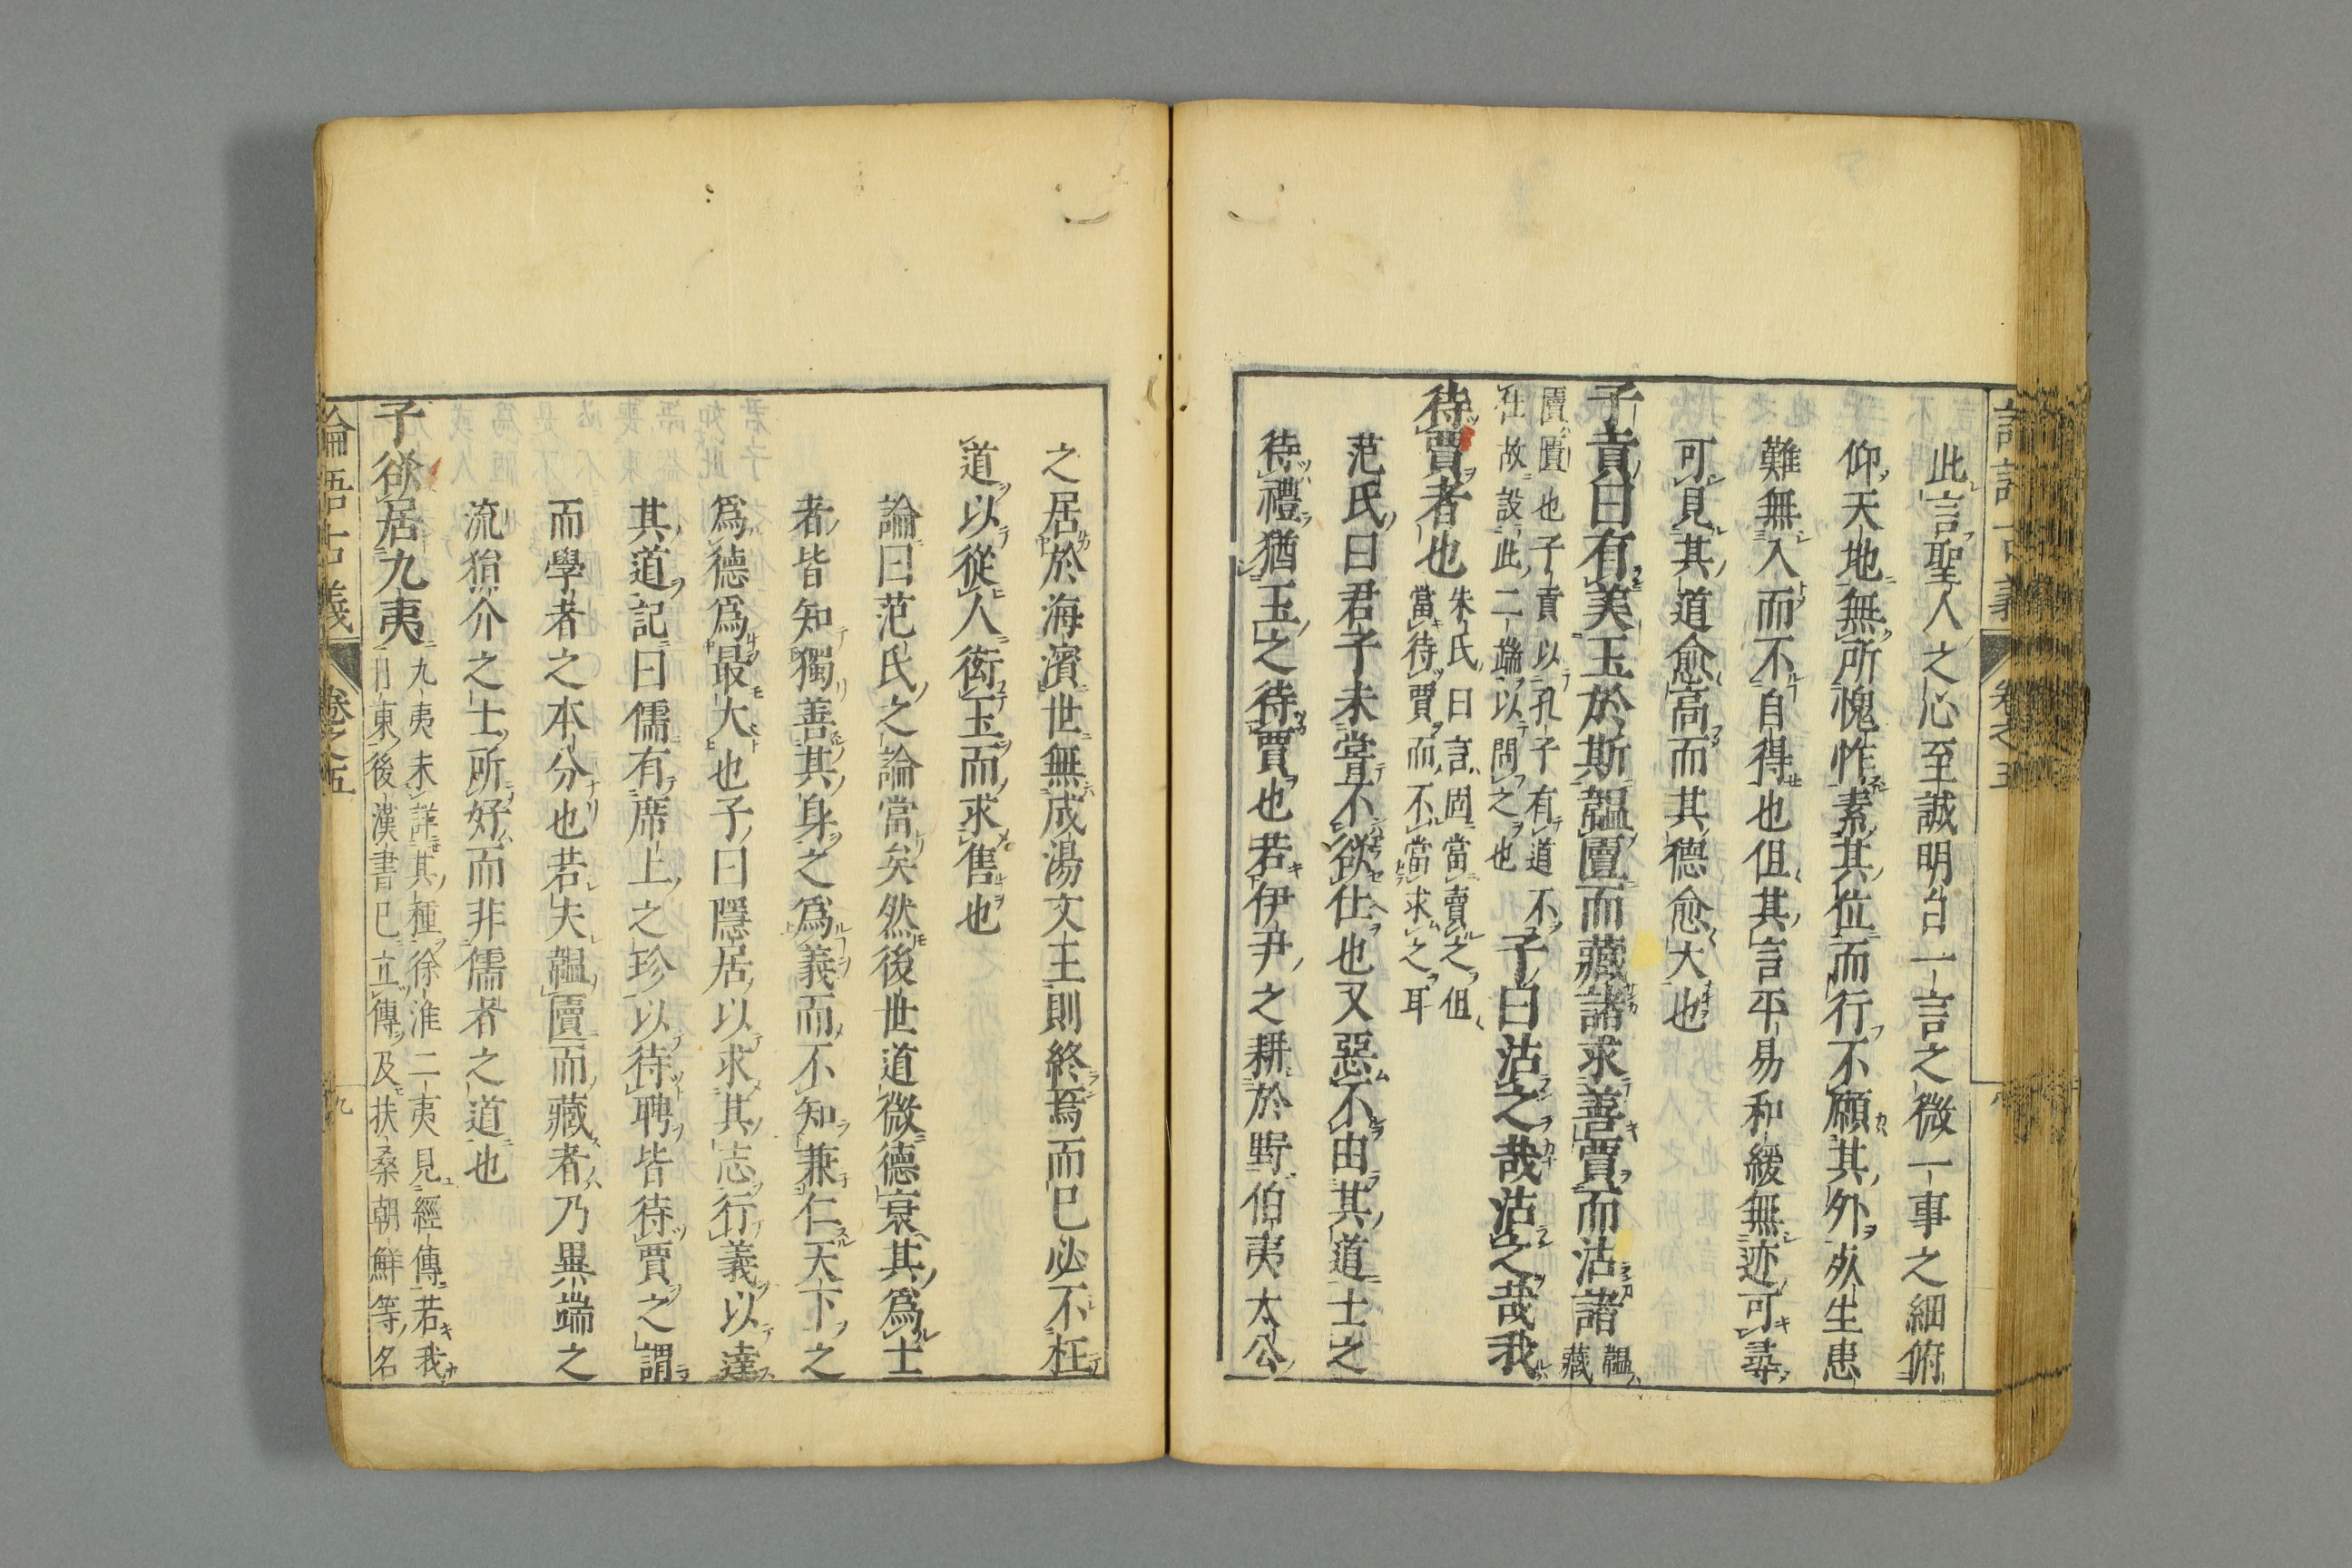 此言聖人之心至誠明白一言之微一事之細俯
仰天地無所愧怍素其位而行不願其外死生患
難無入而不自得也但其言平易和緩無迹可尋
可見其道愈高而其德愈大也
子貢曰有美玉於斯韞匵而藏諸求善賈而沽諸
韞
藏
匵匱也子貢以孔子有道不
仕故設此二端以問之也
子曰沽之哉沽之哉我
待賈者也
朱氏曰言固當賣之但
當待賈而不當求之耳
范氏曰君子未嘗不欲仕也又惡不由其道士之
待禮猶玉之待賈也若伊尹之耕於野伯夷太公
之居於海濱世無成湯文王則終焉而已必不枉
道以從人衒玉而求售也
論曰范氏之論當矣然後世道微德衰其爲士
者皆知獨善其身之爲義而不知兼仁天下之
爲德爲最大也子曰隱居以求其志行義以達
其道記曰儒有席上之珍以待聘皆待賈之謂
而學者之本分也若夫韞匵而藏者乃異端之
流狷介之士所好而非儒者之道也
子欲居九夷
九夷未詳其種徐淮二夷見經傳若我
日東後漢書已立傳及扶桑朝鮮等名
論語古義
卷之五
九